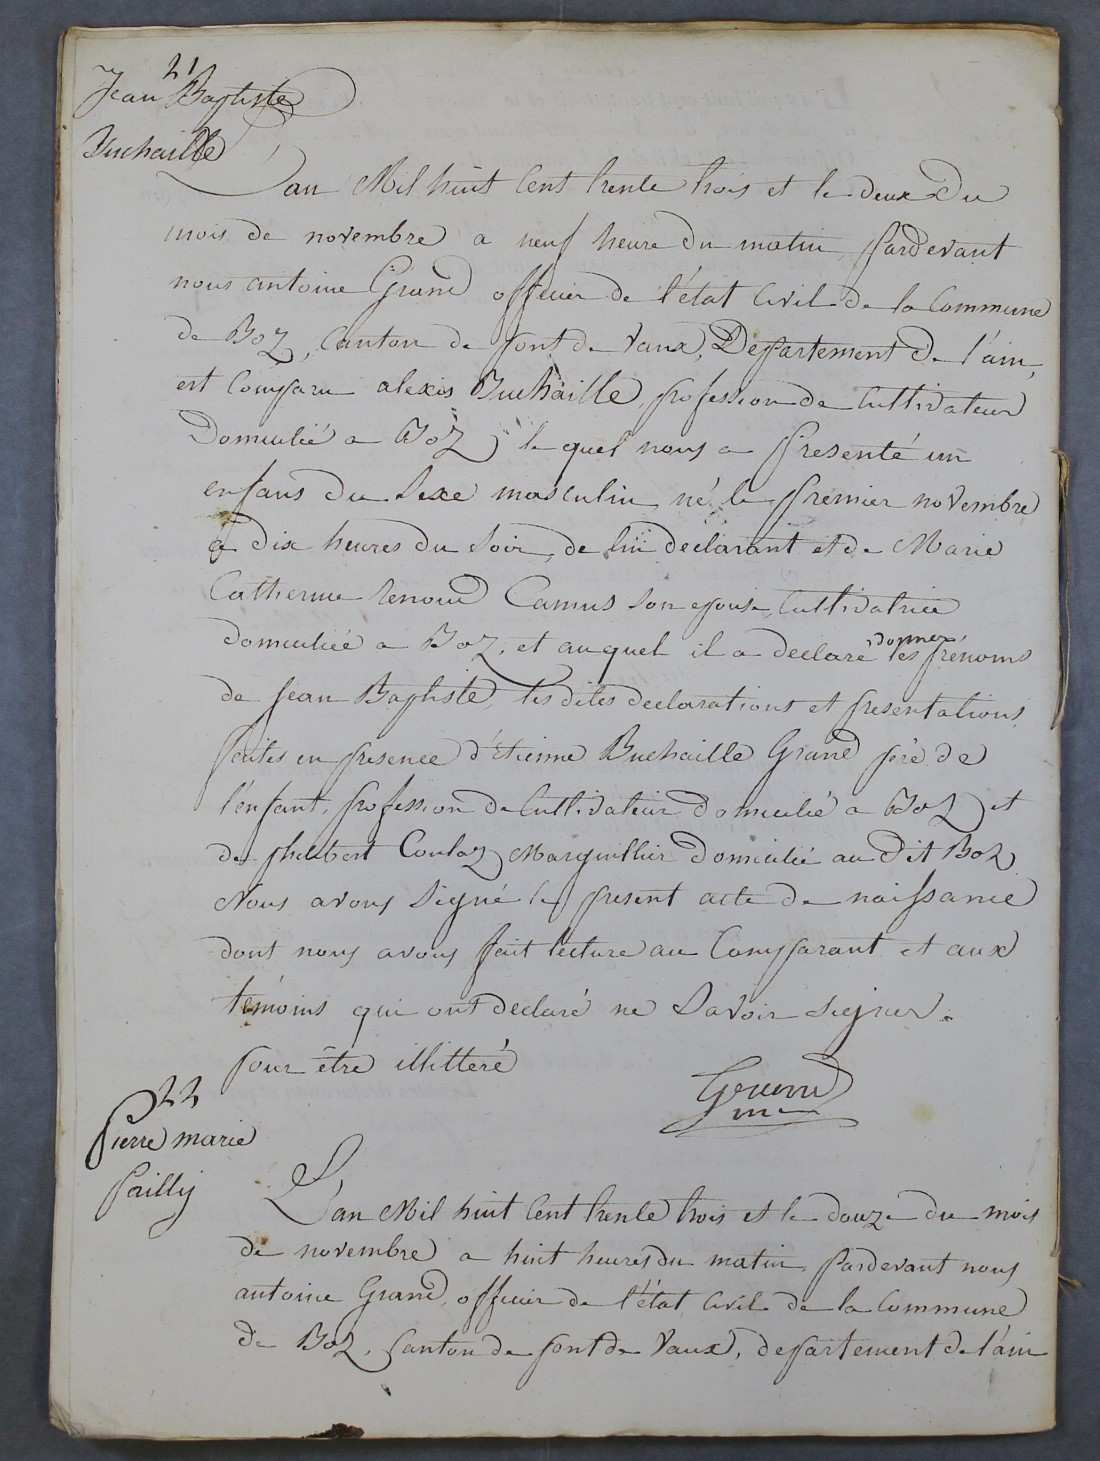 21
Jean Baptiste
Buchaille
L'an Mil huit Cent trente trois et le deux du
mois de novembre a neuf heure du matin pardevant
nous antoine Grand officier de l'état Civil de la Commune
de Boz, Canton de pont de Vaux, Département de l'ain,
est Comparu alexis Buchaille, profession de Cultivateur
Domicilié a Boz le quel nous a presenté un
enfans du Sexe masculin né le premier novembre
a dix heures du Soir, de lui declarant et de Marie
Catherine renoud Camus Son epouse, Cultivatrice
domiciliée a Boz, et auquel il a declaré donner les prénoms
de Jean Baptiste, les dites declarations et presentations
faites en presence d'Etienne Buchaille Grand père de
l'enfant, profession de Cultivateur domicilié a Boz et
de philibert Coulaz Marguillier domicilié au dit Boz
Nous avons Signé le present acte de naissance
dont nous avons fait lecture au Comparant et aux
témoins qui ont declaré ne Savoir Signer.
pour être illitteré
Grand
22
Pierre marie
pailly
L'an Mil huit Cent trente trois et le douze du mois
de novembre a huit heures du matin, pardevant nous
antoine Grand, officier de l'état Civil de la Commune
de Boz, Canton de pont de Vaux, departement de l'ain